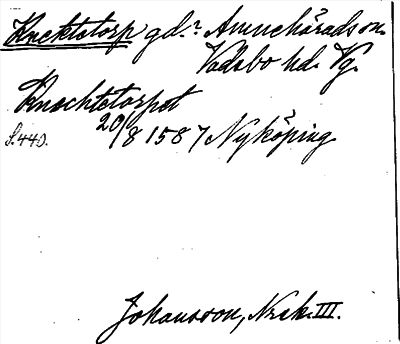 Knektetorp gd.? Amnehärads sn.
Vadsbo hd. Vg.
Knechtetorpet
S. 440. 20/8 1587 Nyköping
Johansson, Nrsk. III.